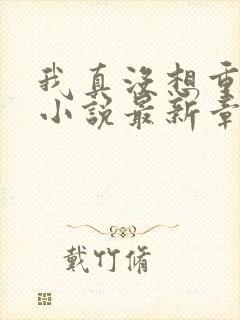 我真没想重
小说最新章
戴竹脩